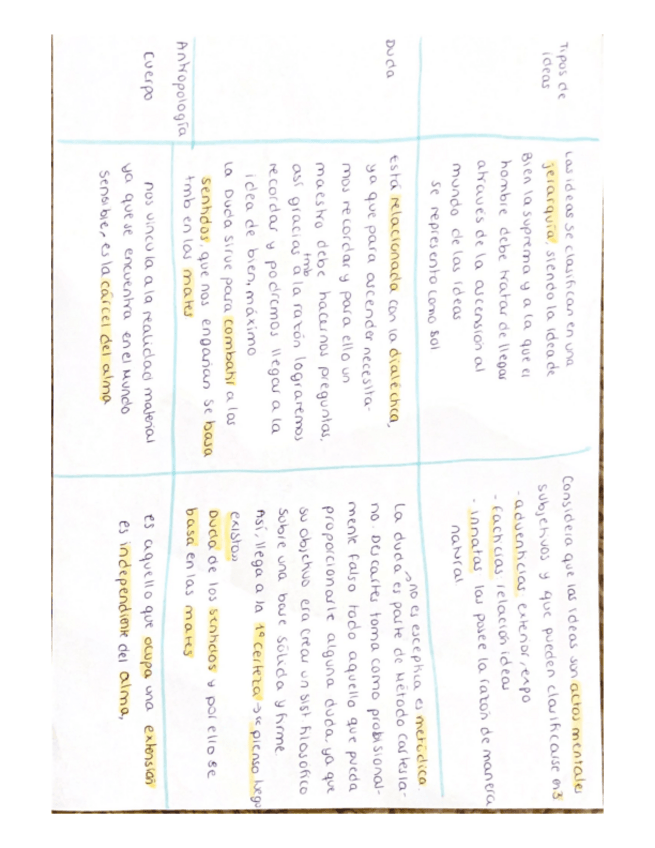 Tipos de
ideas
Las ideas se clasifican en una
jerarquía, siendo la idea de
Bien la suprema y a la que el
hombre debe tratar de llegar
através de la ascensión al
mundo de las ideas
se representa como sol
Considera que las ideas son actos mentales
subjetivos y que pueden clasificarse en 3
- adventicias exterior, expo
- facticias relación ideas
- innatas las posee la razón de manera
natural
Duda
Está relacionada con la dialéctica,
ya que para ascender necesita-
mos recordar y para ello un
maestro debe hacernos preguntas,
tmb
así gracias a la razón lograremos
recordar y podremos llegar a la
idea de bien, máximo
La Duda sirve para combatir a los
sentidos, que nos engañan se basa
tmb en las mates
→ no es escéptica es metódica
La duda es parte de Método cartesia-
no. Descartes toma como probisional-
mente falso todo aquello que pueda
proporcionarle alguna duda, ya que
su objetivo era crear un sist filosófico
sobre una base sólida y firme.
Así, llega a la 1ª certeza →
pienso luego
existo»
Duda de los sentidos y por ello se
basa en las mates
Antropología
Cuerpo
nos vincula a la realidad material
ya que se encuentra en el Mundo
sensible, es la cárcel del alma
es aquello que ocupa una extensión
es independiente del alma,